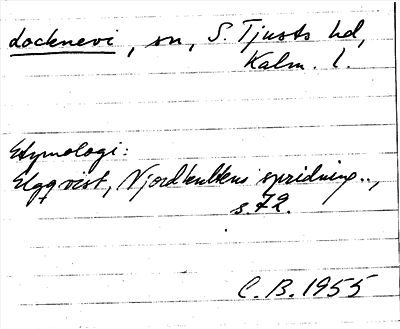 Locknevi, sn, S. Tjusts hd,
Kalm. l.
Etymologi:
Elgqvist, Njordkultens spridning..,
s. 72.
C. B. 1955